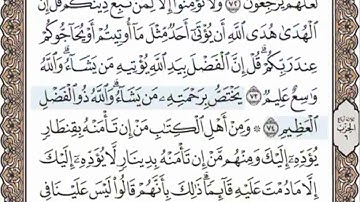 لَعَلَّهُمْ يَرْجِعُونَ ٧٢ وَلَا تُؤْمِنُوٓا۟ إِلَّا لِمَن تَبِعَ دِينَكُمْ قُلْ إِنَّ
ٱلْهُدَىٰ هُدَى ٱللَّهِ أَن يُؤْتَىٰٓ أَحَدٌ مِّثْلَ مَآ أُوتِيتُمْ أَوْ يُحَآجُّوكُمْ
عِندَ رَبِّكُمْ قُلْ إِنَّ ٱلْفَضْلَ بِيَدِ ٱللَّهِ يُؤْتِيهِ مَن يَشَآءُ وَٱللَّهُ
وَٰسِعٌ عَلِيمٌ ٧٣ يَخْتَصُّ بِرَحْمَتِهِۦ مَن يَشَآءُ وَٱللَّهُ ذُو ٱلْفَضْلِ
ٱلْعَظِيمِ ٧٤ وَمِنْ أَهْلِ ٱلْكِتَٰبِ مَنْ إِن تَأْمَنْهُ بِقِنطَارٍ
يُؤَدِّهِۦٓ إِلَيْكَ وَمِنْهُم مَّنْ إِن تَأْمَنْهُ بِدِينَارٍ لَّا يُؤَدِّهِۦٓ إِلَيْكَ
إِلَّا مَا دُمْتَ عَلَيْهِ قَآئِمًا ذَٰلِكَ بِأَنَّهُمْ قَالُوا۟ لَيْسَ عَلَيْنَا فِى